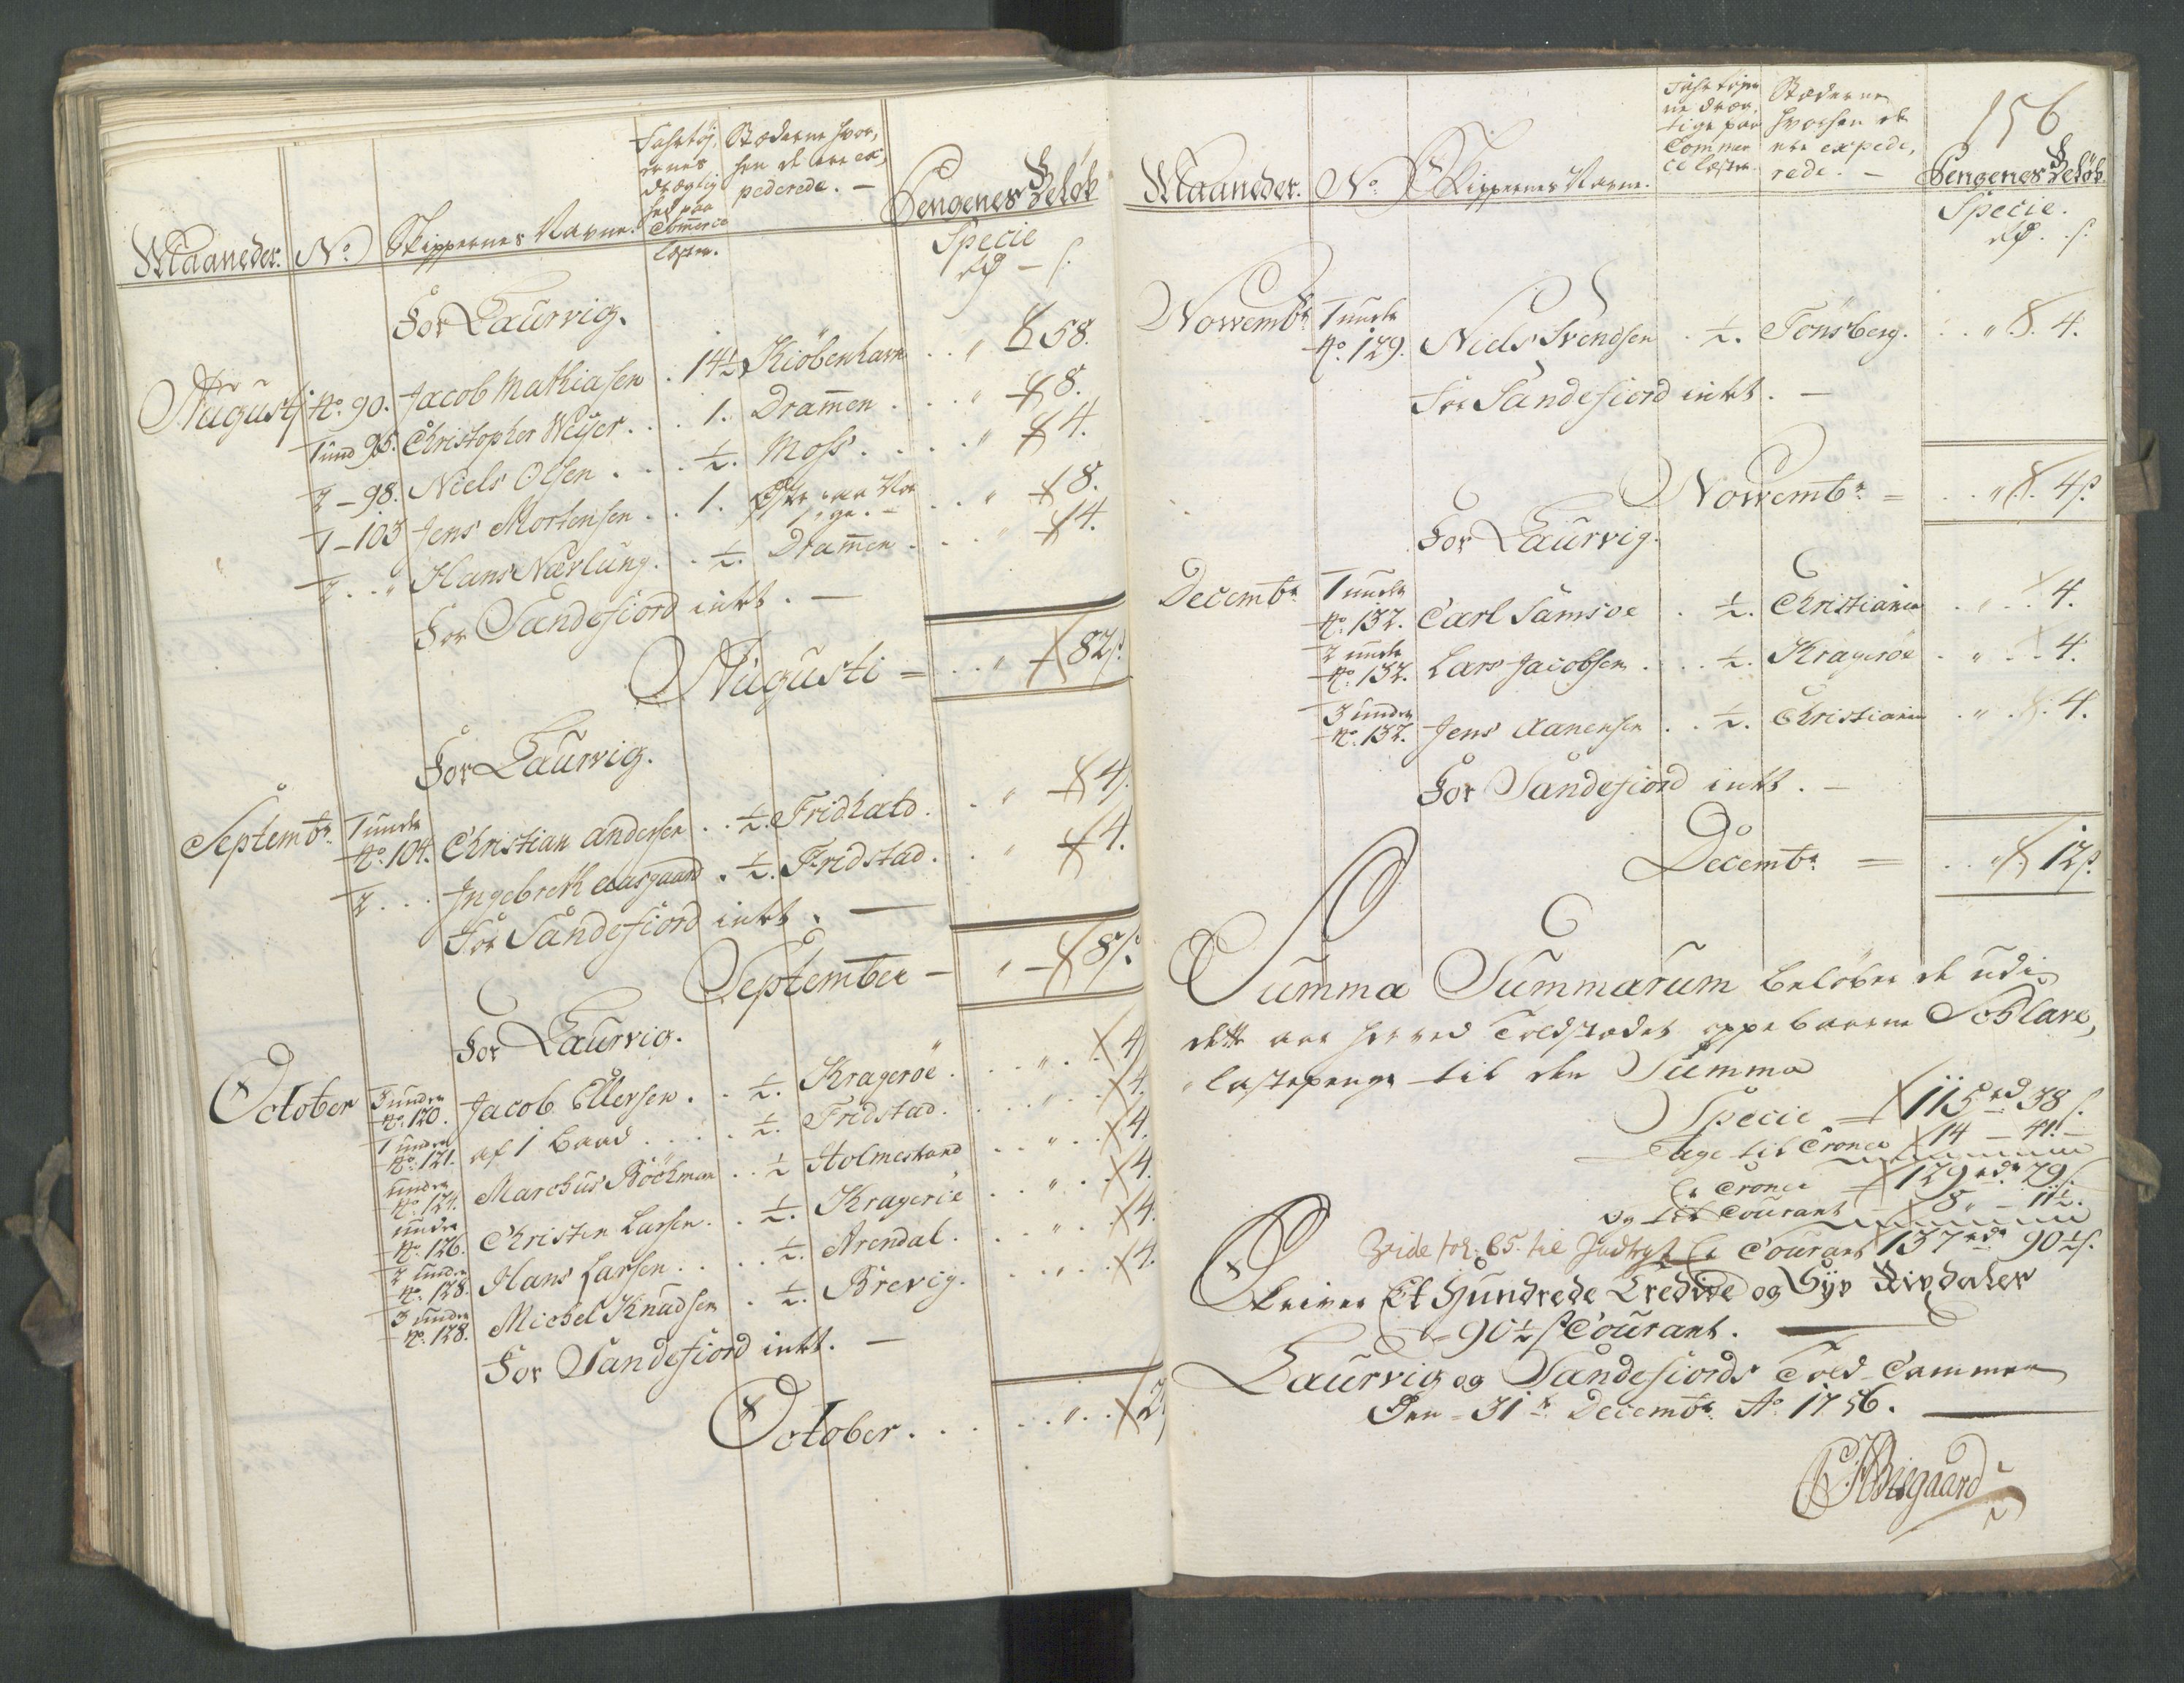 Maaneder. No. Skippernes Navne. Fahrtöj, ernes drægtig hed paa Commerce læster. Stæderne hvor, hen de ere ex, pederede. — Pengenes Belöb
Specie
rd — s.
For Laurvig.
Augusti No. 90. Jacob Mathiasen . 14½ Kiöbenhavn . . " 58.
1 und 95. Christopher Weyer . . . 1. Dramen . . . " 8.
2 – 98. Niels Olsen . . . ½. Moss . . . " 4.
1 – 103 Jens Mortensen . . 1. . . " 8.
2 . . " Hans Nærlung . . ½. Dramen . . . " 4.
For Sandefiord intet. —
Augusti = . . " 82s.
For Laurvig.
Septembr. 1 unde No. 104. Christian Andersen . . ½. Fridhald . . " 4s.
2 . . . Ingebreth Aasgaard . ½. Fridstad . . " 4.
For Sandefiord intet. —
September — " 8s.
For Laurvig.
October 3 under No. 120. Jacob Ellersen . . ½. Kragerøe . . . " . 4
1 under No. 121. af 1 Baad . . . . ½. Fridstad . . . " . 4.
under No. 124. Marchus Böchman . . ½ Holmestrand . . " . . 4.
under No. 126. Christen Larsen . . ½. Kragerøe . . " . 4.
2 under No. 128. Hans Larsen . . . . ½. Arendal . . . " . 4.
3 under No. 128. Michel Knudsen . ½. Brevig . . . " . 4.
For Sandefiord intet. —
October . . . . . " . . 2
156
Maaneder. No. Skippernes Navne. Fahrtöjer ne dræg, tige paa Commer ce læster. Stæderne hvorhen de ere expede, rede. — Pengenes Belöb.
Specie.
rd . . s.
Novembr. 1 unde No. 129. Niels Svendsen . ½. Tönsberg. . . " 4.
For Sandefiord intet. —
Novembr. = . . " 4s.
For Laurvig.
Decembr. 1 unde No. 132. Carl Samsoe . ½. Christiania . . . 4.
2 unde No. 132. Lars Jacobsen . . . ½. Kragerøe . " . . 4.
3 under No. 132. Jens Aanensen . . ½. Christiania . " . . 4.
For Sandefiord intet. —
Decembr. = . . " 12s.
Summa Summarum belöber de udi
dette aar her ved Toldstædet oppebaarne Soblare,
lastepenge til den Summa
Specie — 115 rd 38 s.
Lage til Croner 14 — 41. —
Er Croner — 129 rdr 79 s.
og til Courant — 8 " — 11½.
Vide fol: 65. til Indtegt Er Courant 137 rdr 90½ s.
Skriver Et Hundrede Tredive og Syv Rixdaler
— 90½ s Courant. —
Laurvig og Sandefiords Told-Cammer
Den = 31te Decembr. Ao. 1756. —